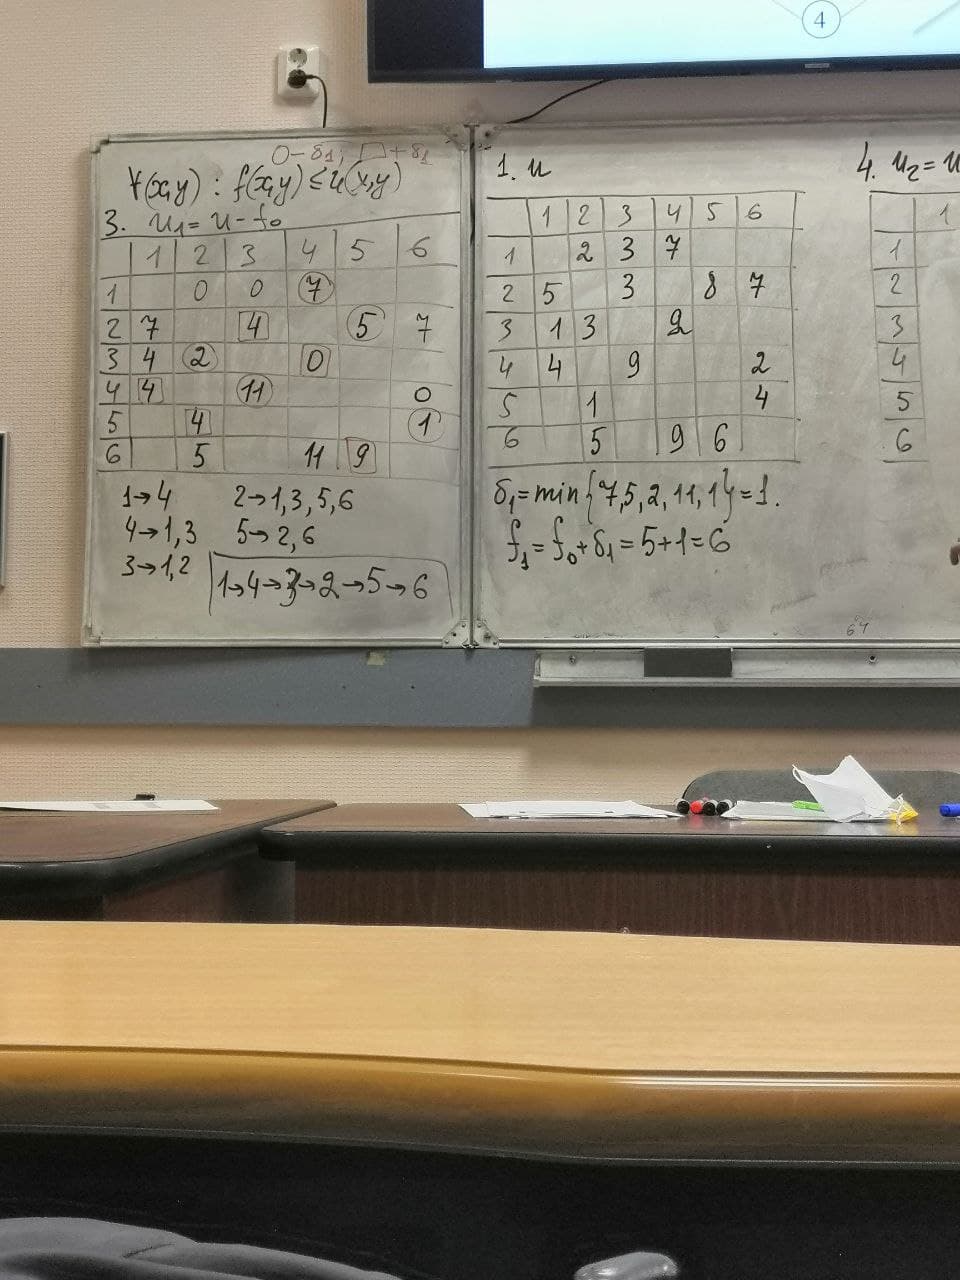 4
○ - δ₁; □ + δ₁
∀(x,y) : f(x,y) ≤ u(x,y)
3. u₁ = u - f₀
1 2 3 4 5 6
1 0 0 7
2 7 4 5 7
3 4 2 0
4 4 11 0
5 4 1
6 5 11 9
1→4 2→1,3,5,6
4→1,3 5→2,6
3→1,2
1→4→3→2→5→6
1. u
1 2 3 4 5 6
1 2 3 7
2 5 3 8 7
3 1 3 2
4 4 9 2
5 1 4
6 5 9 6
δ₁ = min{7,5,2,11,1} = 1.
f₁ = f₀ + δ₁ = 5+1 = 6
64
4. u₂ = u
1
1
2
3
4
5
6